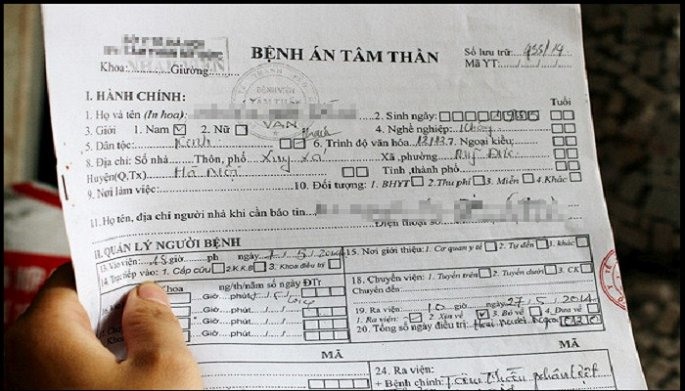 BỆNH ÁN TÂM THẦN
Số lưu trữ: 955/14
Khoa:..........Giường:......
Mã YT:....../....../......
BỆNH VIỆN
TÂM THẦN
I. HÀNH CHÍNH:
Tuổi
1. Họ và tên (In hoa):
VẠN
2. Sinh ngày:
3. Giới 1. Nam 2. Nữ
4. Nghề nghiệp: Không
5. Dân tộc: Kinh
6. Trình độ văn hóa: 12/12
7. Ngoại kiều:
8. Địa chỉ: Số nhà Thôn, phố Xuy Xá Xã, phường
Huyện(Q,Tx) Hà Nội Tỉnh, thành phố
9. Nơi làm việc: 10. Đối tượng: 1. BHYT 2. Thu phí 3. Miễn 4. Khác
11. Họ tên, địa chỉ người nhà khi cần báo tin
Điện thoại số
II. QUẢN LÝ NGƯỜI BỆNH
13. Vào viện: 15 giờ ph ngày 7.5.2014
15. Nơi giới thiệu: 1. Cơ quan y tế 2. Tự đến 3. khác
14. Trực tiếp vào: 1. Cấp cứu 2. K.K.B 3. Khoa điều trị
Khoa ng/th/năm số ngày ĐTr
18. Chuyển viện: 1. Tuyến trên 2. Tuyến dưới 3. CK
Giờ phút
Chuyển đến:
Giờ phút
19. Ra viện: 10 giờ 27.5.2014
1. Ra viện 2. Xin về 3. Bỏ về 4. Đưa về
Giờ phút
20. Tổng số ngày điều trị:
MÃ
MÃ
24. Ra viện:
- Bệnh chính: Tâm thần phân liệt